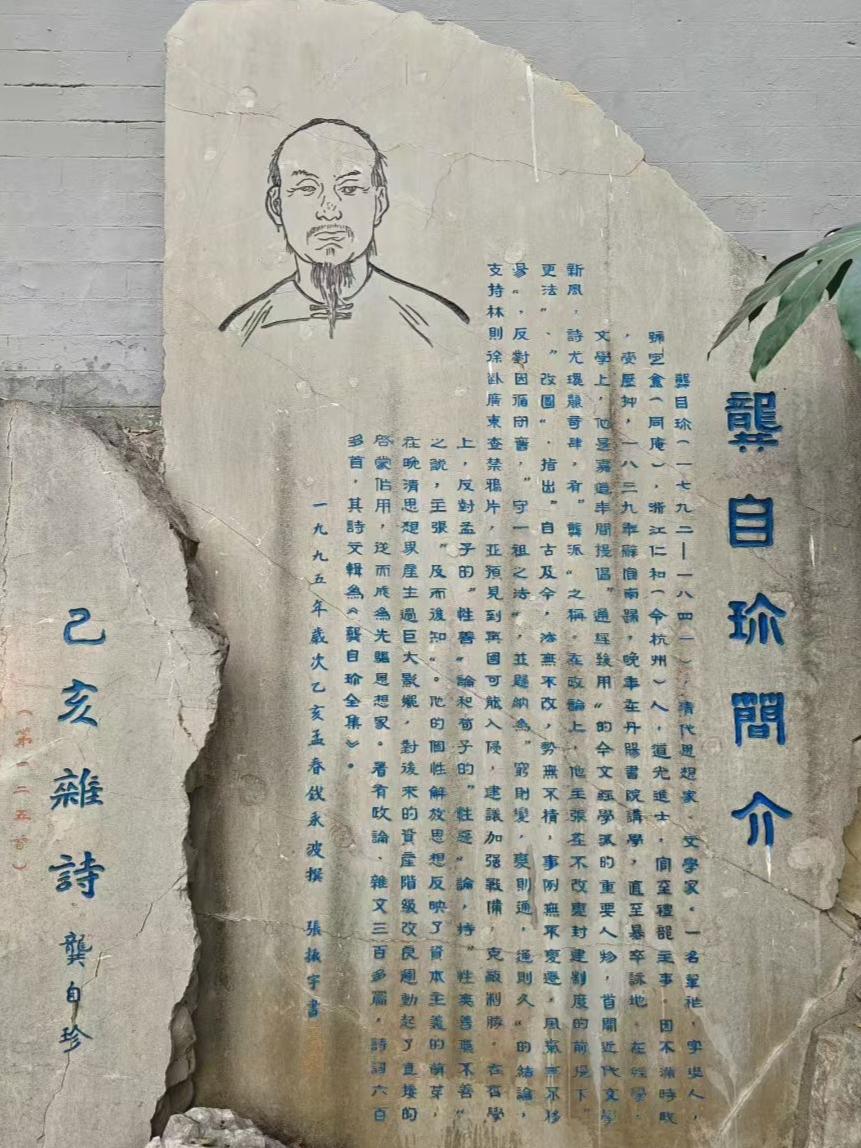 龔自珍簡介
龔自珍(一七九二——一八四一),清代思想家、文學家。一名鞏祚,字璱人,
號定盦(同庵),浙江仁和(今杭州)人,道光進士,官至禮部主事。因不滿時政
,受壓抑,一八三九年辭官南歸,晚年在丹陽書院講學,直至暴卒該地。在經學、
文學上,他是嘉道年間提倡"通經致用"的今文經學派的重要人物,首開近代文學
新風,詩尤瓌麗奇肆,有"龔派"之稱。在政論上,他主張在不改變封建制度的前提下"
更法"、"改圖",指出"自古及今,法無不改,勢無不積,事例無不變遷,風氣無不移
易",反對因循守舊,"守一祖之法",並歸納爲"窮則變,變則通,通則久"的結論,
支持林則徐赴廣東查禁鴉片,並預見到英國可能入侵,建議加强戰備,克敵制勝。在哲學
上,反對孟子的"性善"論和荀子的"性惡"論,持"性無善無不善"
之說,主張"及而後知"。他的個性解放思想反映了資本主義的萌芽,
在晚清思想界産生過巨大影響,對後來的資産階級改良運動起了直接的
啓蒙作用,從而成爲先驅思想家。著有政論、雜文三百多篇,詩詞六百
多首,其詩文輯爲《龔自珍全集》。
一九九五年歲次乙亥孟春錢永波撰 張振宇書
己亥雜詩 龔自珍
(第一二五首)